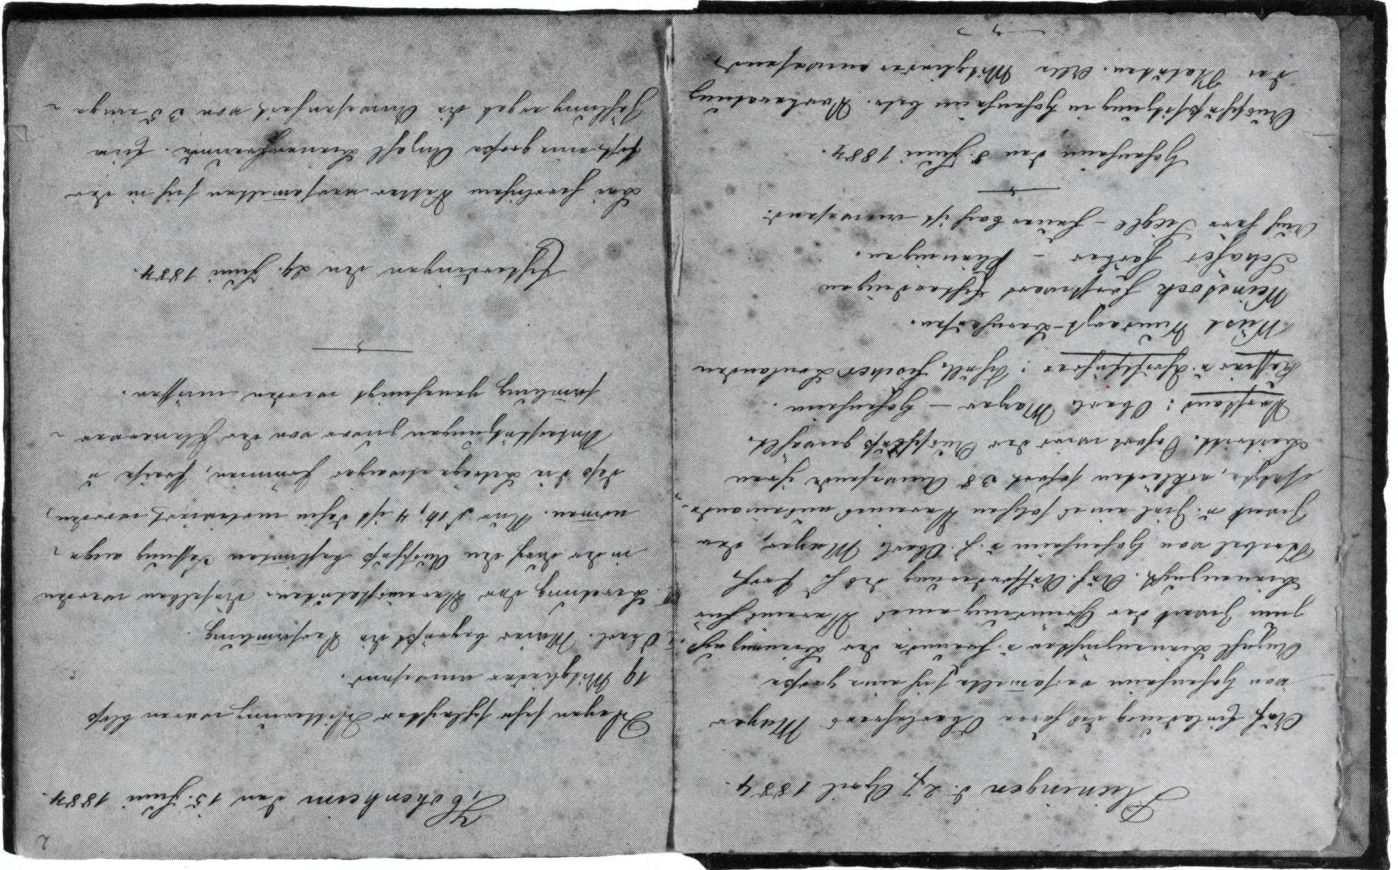 Plieningen d. 27 April 1884.
Auf Einladung des Herrn Oberlehrers Mayer
von Hohenheim versamelte sich eine große
Anzahl Bienenzüchter u. Freunde der Bienenzucht
zum Zweck der Gründung eines Vereins für
Bienenzucht. Auf Aufforderung des H. Prof.
Strebel von Hohenheim u. H. Oberl. Mayer, den
Zweck u. Ziel eines solchen Vereines auseinander-
setzte, erklärten sofort 38 Anwesende ihren
Beitritt. Sofort wird der Ausschuß gewählt.
Vorstand: Oberl. Mayer – Hohenheim.
Kassier u. Schriftführer: Schull. Locher Bonlanden
Wüst Wundarzt-Bernhausen.
Weinstock Forstwart Echterdingen
Schäfer Farber – Plieningen.
Auch Herr Siegle – Feuerbach ist anwesend.
Hohenheim den 8. Juni 1884.
Ausschußsitzung in Hohenheim betr. Vorberatung
der Statuten. Alle Mitglieder anwesend
2
Hohenheim den 15. Juni 1884.
Wegen sehr schlechter Witterung waren bloß
19 Mitglieder anwesend.
Oberl. Mayer begrüßt die Versamlung.
Beratung der Vereinsstatuten. Dieselben werden
in der durch den Ausschuß bestimten Fassung ange-
nomen. Nur § 16, 4 ist dahin motivirt worden,
daß die Beträge etwaiger Prämien, Preise u.
Unterstützungen zuvor von der Plenarver-
samlung genehmigt werden müssen.
Echterdingen den 29. Juni 1884.
Bei herrlichem Wetter versamelten sich in der
Post eine große Anzahl Bienenfreunde. Eine
Zählung ergab die Anwesenheit von 35 einge-